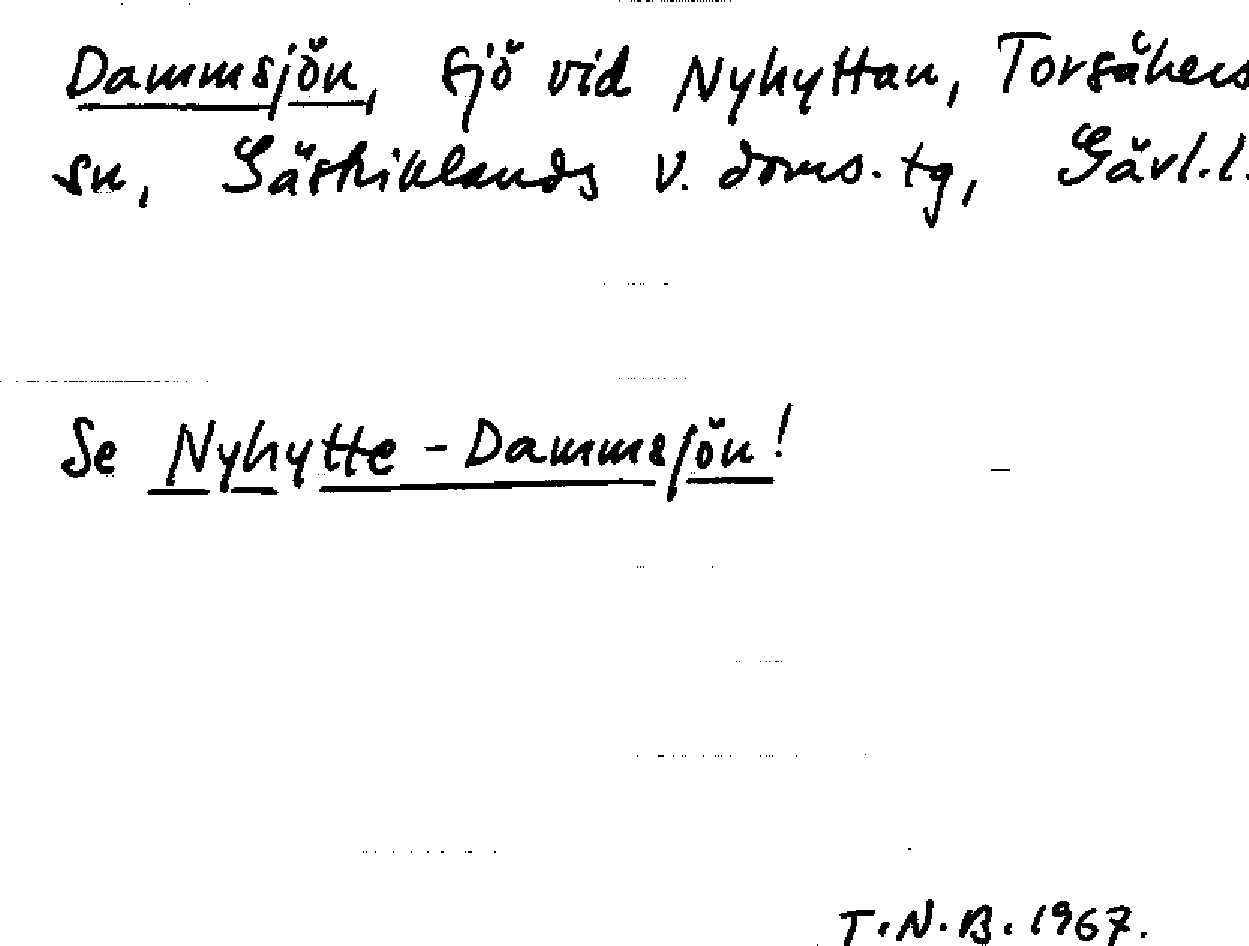 Dammsjön, sjö vid Nyhyttan, Torsåkers
sn, Gästriklands v. doms. tg, Gävl.l.
Se Nyhytte-Dammsjön!
T.N.B. 1967.